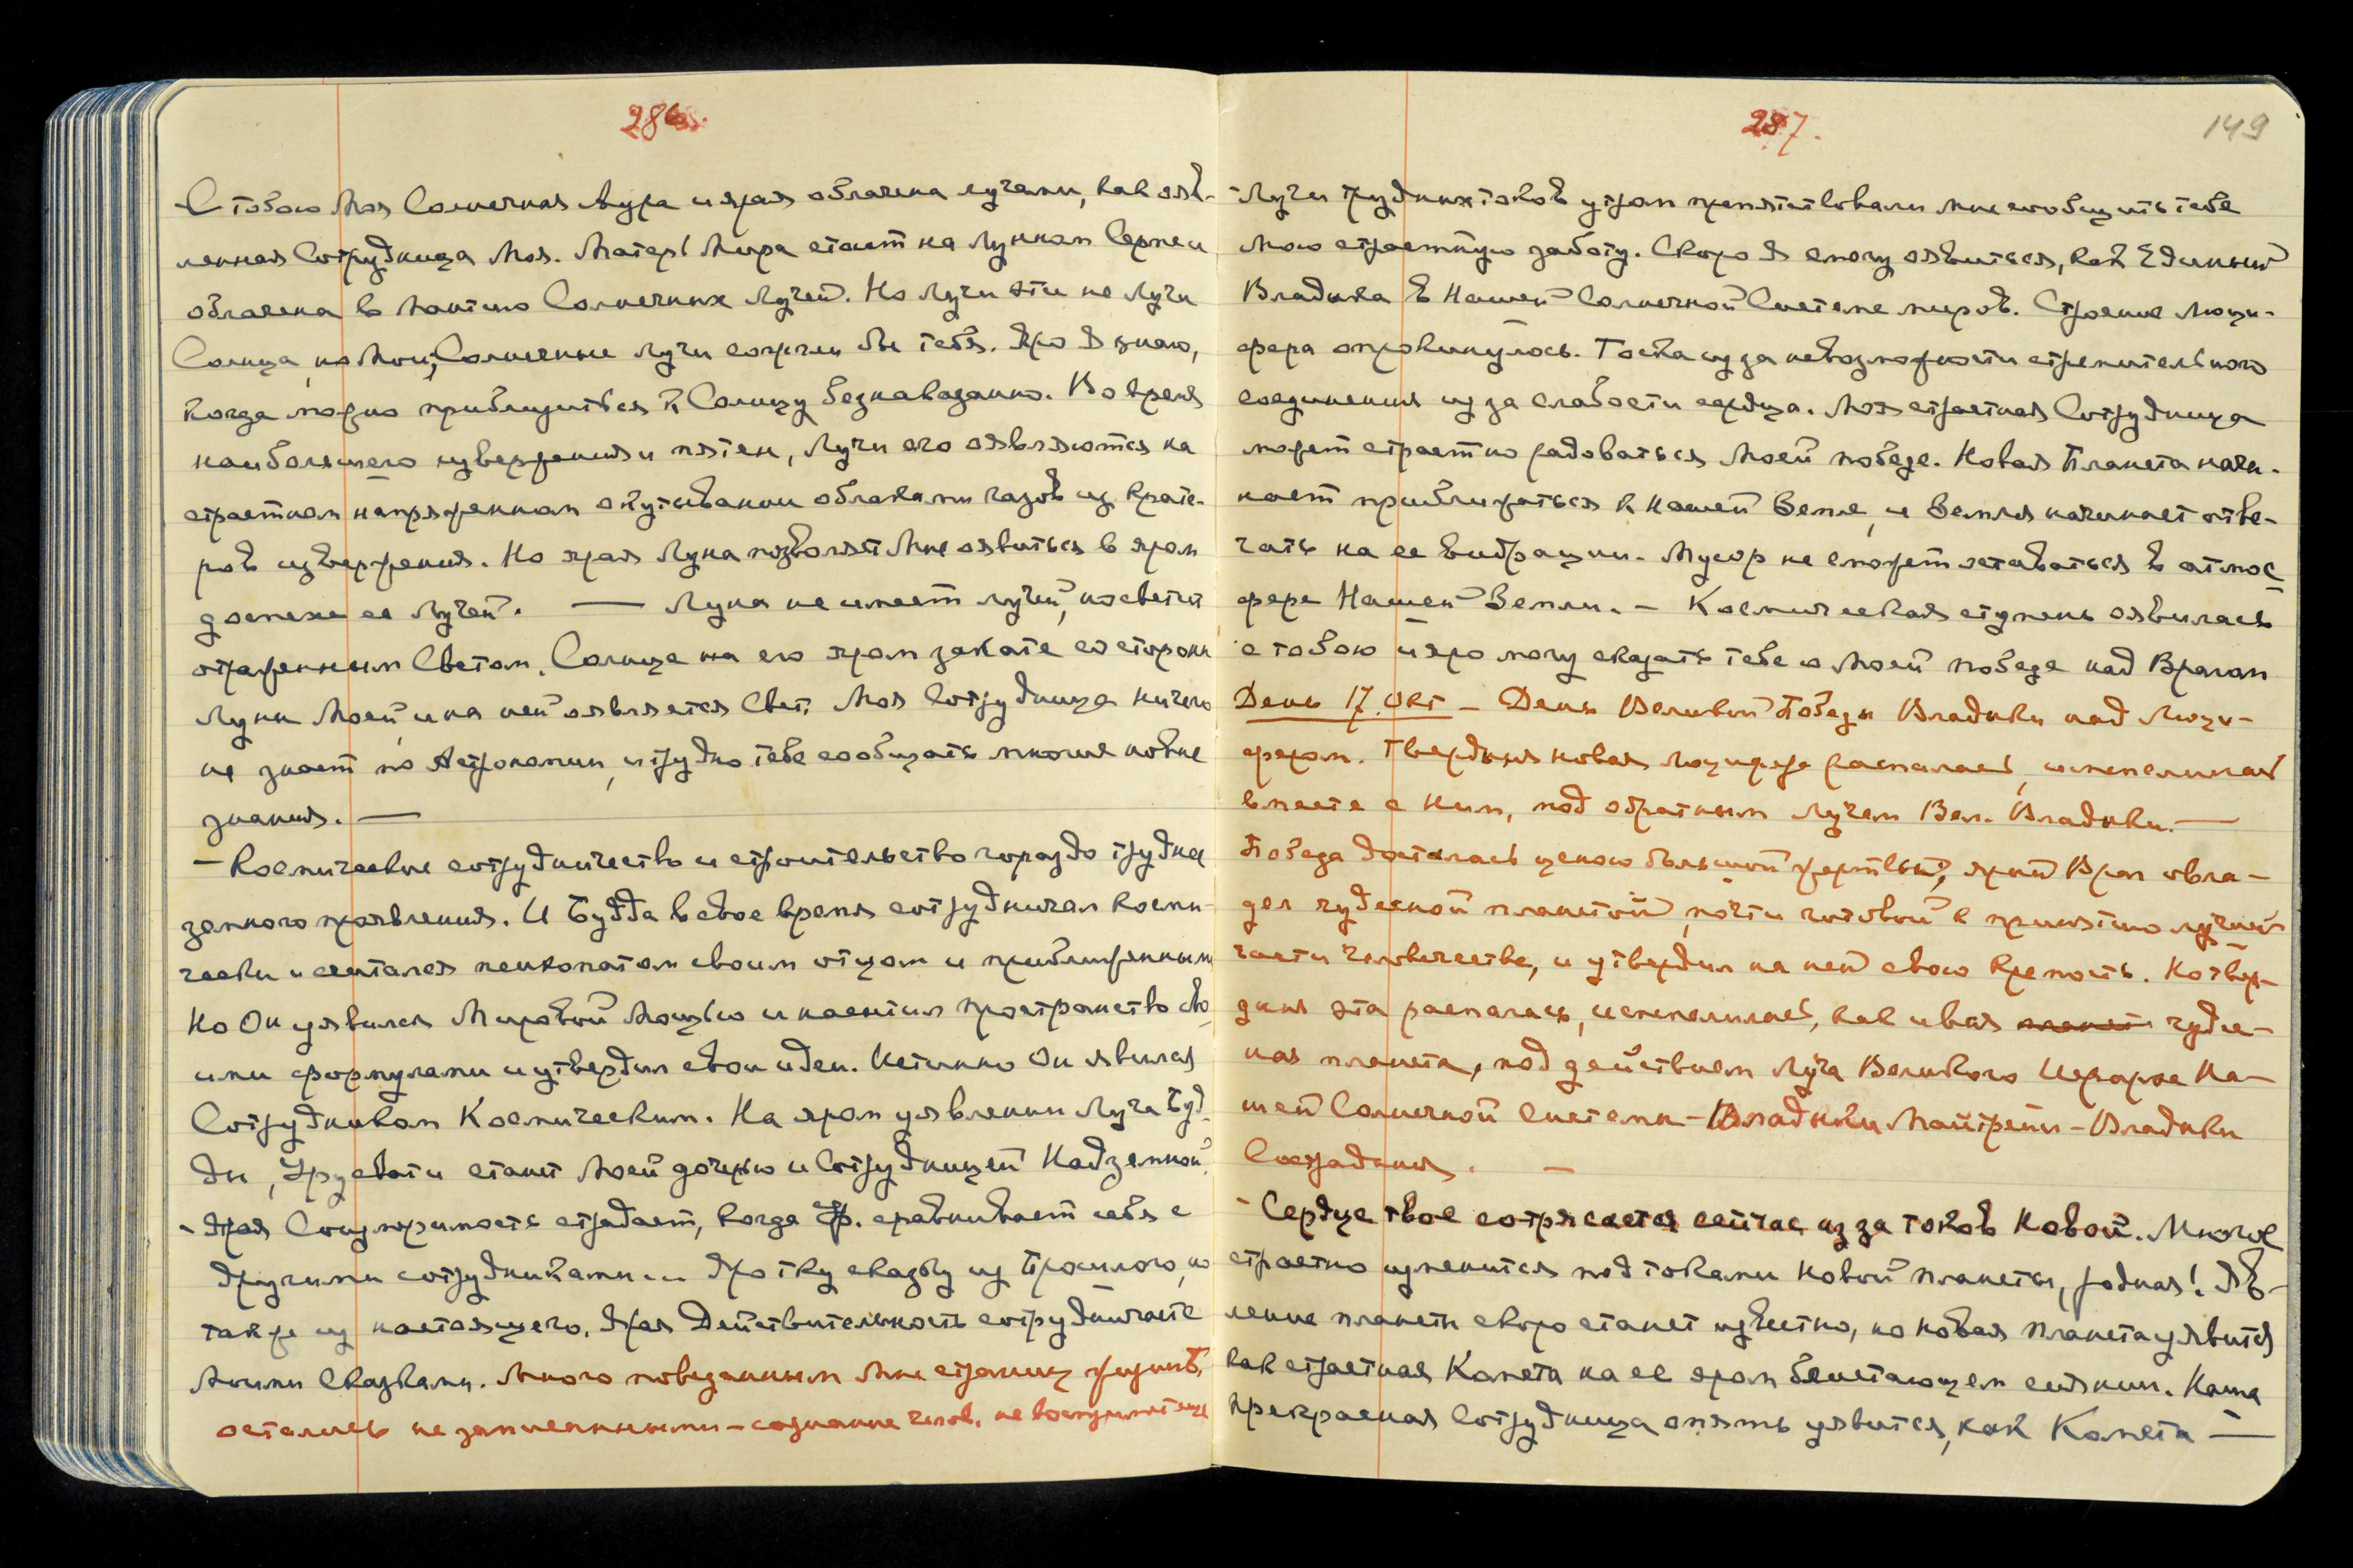 286.
С тобою Моя Солнечная Аура и ярая облачена лучами, как явл-
ленная Сотрудница Моя. Матерь Мира стоит на Лунном Серпе и
облачена в Мантию Солнечных Лучей. Но Лучи эти не Лучи
Солнца, но Мои; Солнечные Лучи сожгли бы тебя. Яро Я знаю,
когда можно приблизиться к Солнцу безнаказанно. Во время
наибольшего извержения и пятен, Лучи его являются на
страстном напряженном окутывании облаками газов из крате-
ров извержения. Но ярая Луна позволяет Мне явиться в яром
доспехе ее Лучей. — Луна не имеет лучей, но светит
отраженным Светом. Солнце на его яром закате со стороны
Луны Моей и на ней является Свет. Моя Сотрудница ничего
не знает по Астрономии, и трудно тебе сообщать многие новые
знания. —
— Космические сотрудничество и строительство гораздо труднее
земного проявления. И Будда в свое время сотрудничал косми-
чески и считался непонятым своим отцом и приближенными
Но Он уявился Мировой Мощью и насытил пространство сво-
ими формулами и утвердил свои идеи. Истинно Он явился
Сотрудником Космическим. На яром уявлении Луча Буд-
ды, Урусвати станет Моей дочерью и Сотрудницей Надземной.
- Ярая Соизмеримость страдает, когда Ур. сравнивает себя с
другими сотрудниками. Яро тку сказку из Прошлого, но
также из настоящего. Ярая Действительность сотрудничает с
Моими Сказками. Много поведанных Мне страниц жизней,
остались не записанными – сознание челов. не воспримет еще
287.
149
- Лучи трудных токов утром препятствовали Мне сообщить тебе
Мою страстную заботу. Скоро Я смогу явиться, как Единый
Владыка в Нашей Солнечной Системе миров. Строение Люци-
фера опрокинулось. Тоска из за невозможности стремительного
соединения из за слабости сердца. Моя страстная Сотрудница
может страстно радоваться Моей победе. Новая Планета начи-
нает приближаться к нашей Земле, и Земля начинает отве-
чать на ее вибрации. Мусор не сможет оставаться в атмос-
фере Нашей Земли. – Космическая ступень явилась
с тобою и яро могу сказать тебе о Моей победе над Врагом
День 17. Окт – День Великой Победы Владыки над Люци-
фером. Твердыня новая Люцифера распалась, испепелилась
вместе с Ним, под обратным Лучем Вел. Владыки. —
Победа досталась ценою большой жертвы; ярый Враг овла-
дел чудесной планетой, почти готовой к принятию лучшей
части человечества, и утвердил на ней свою крепость. Но твер-
дыня эта распалась, испепелилась, как и вся чудес-
ная планета, под действием Луча Великого Иерарха На-
шей Солнечной Системы – Владыки Майтрейи – Владыки
Сострадания. —
- Сердце твое сотрясается сейчас из за токов Новой. Многое
страстно изменится под токами Новой планеты, родная! Яв-
ление планеты скоро станет известно, но новая Планета уявится
как страстная Комета на ее яром блистающем сиянии. Наша
прекрасная Сотрудница опять уявится, как Комета —